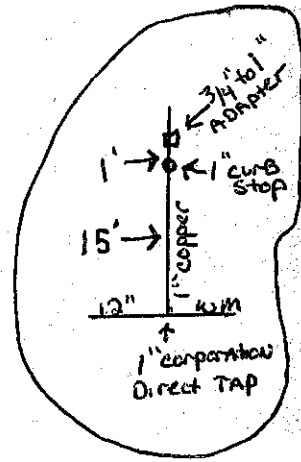 3/4" to 1"
ADAPTER
1'
1" curb
Stop
15'
1" copper
12" W.M
1" corporation
Direct TAP